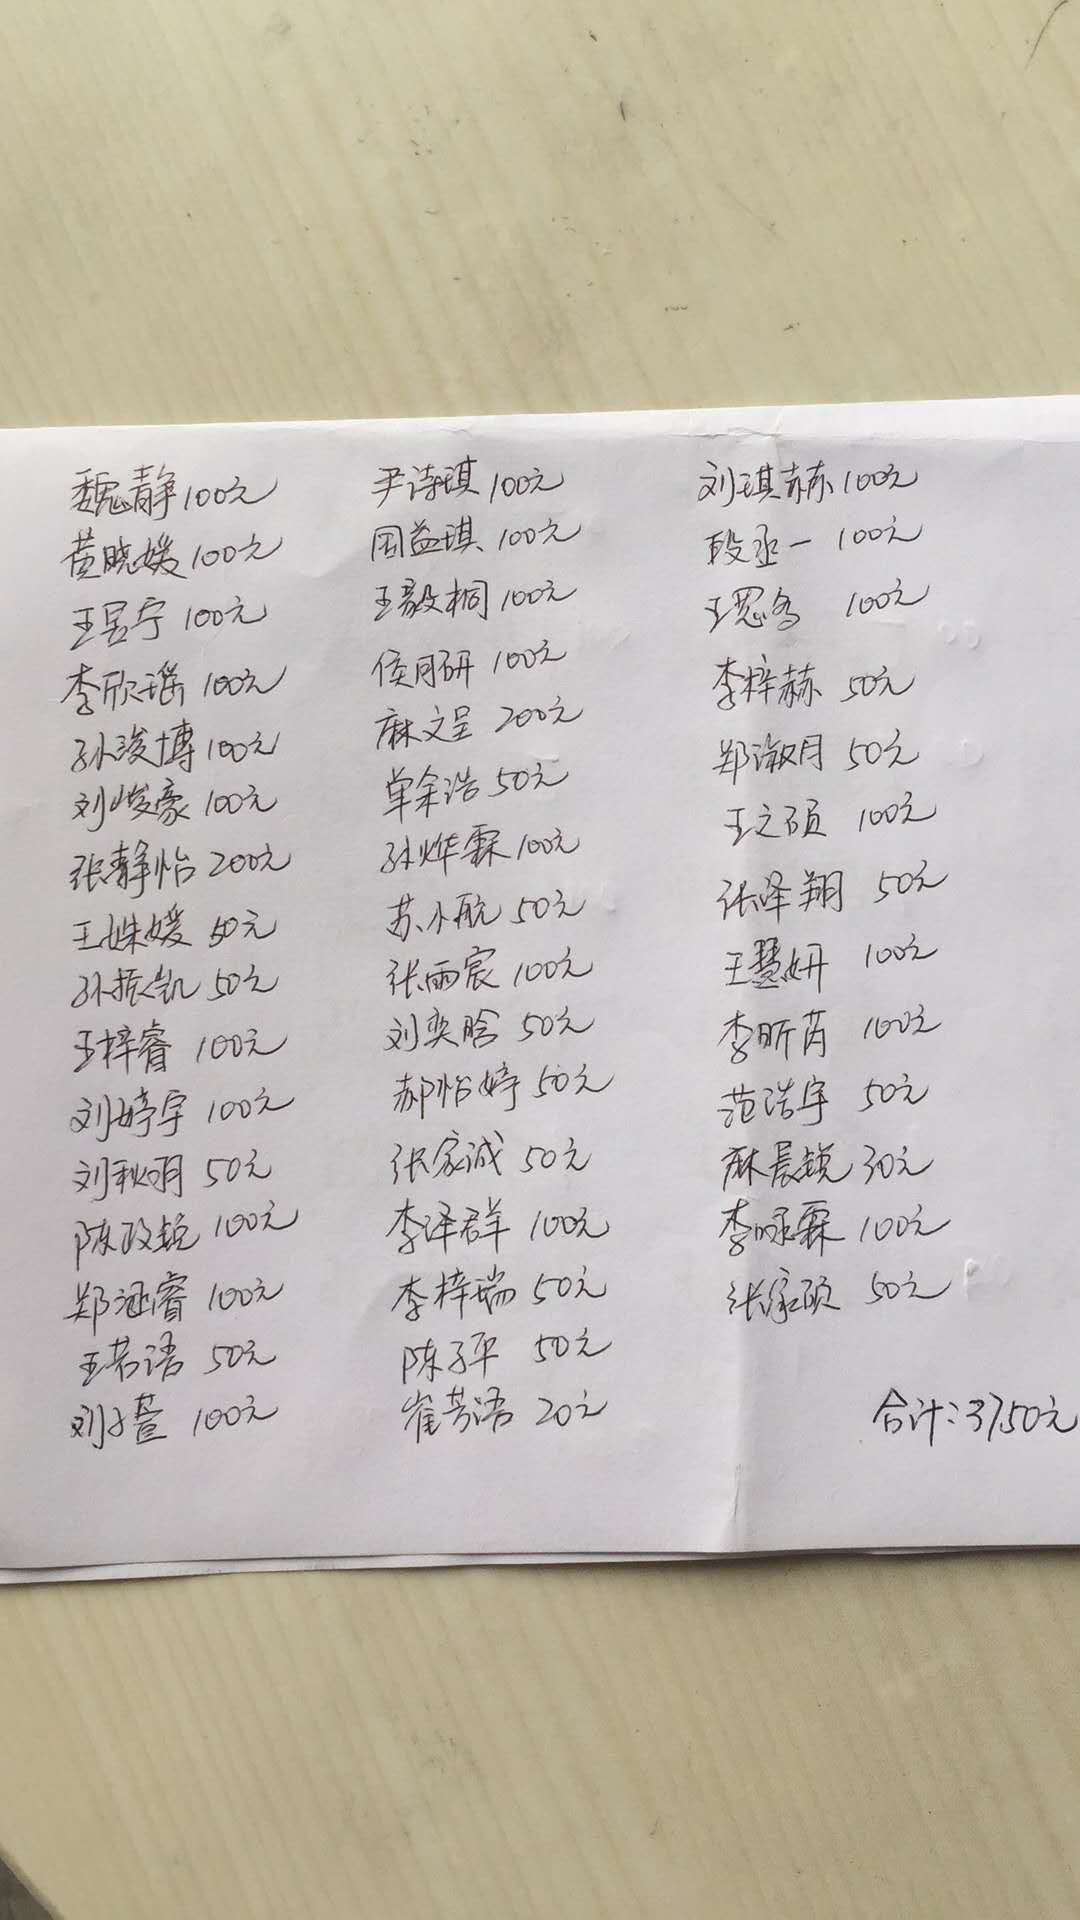 魏静100元
黄晓媛100元
王昱宁100元
李欣瑶100元
孙浚博100元
刘峻豪100元
张静怡200元
王姝媛50元
孙振凯50元
王梓睿100元
刘婷宇100元
刘秋明50元
陈政锐100元
郑涵睿100元
王若语50元
刘子萱100元
尹诗琪100元
周益琪100元
王毅桐100元
侯月研100元
麻文呈200元
单余浩50元
孙烨霖100元
苏小航50元
张雨宸100元
刘奕晗50元
郝怡婷50元
张家诚50元
李泽群100元
李梓瑞50元
陈子平50元
崔芳语20元
刘琪赫100元
段丞一100元
王思 100元
李梓赫50元
郑淑月50元
王之硕100元
张泽翔50元
王慧妍100元
李昕芮100元
范浩宇50元
麻晨锐30元
李咏霖100元
张家硕50元
合计:3750元